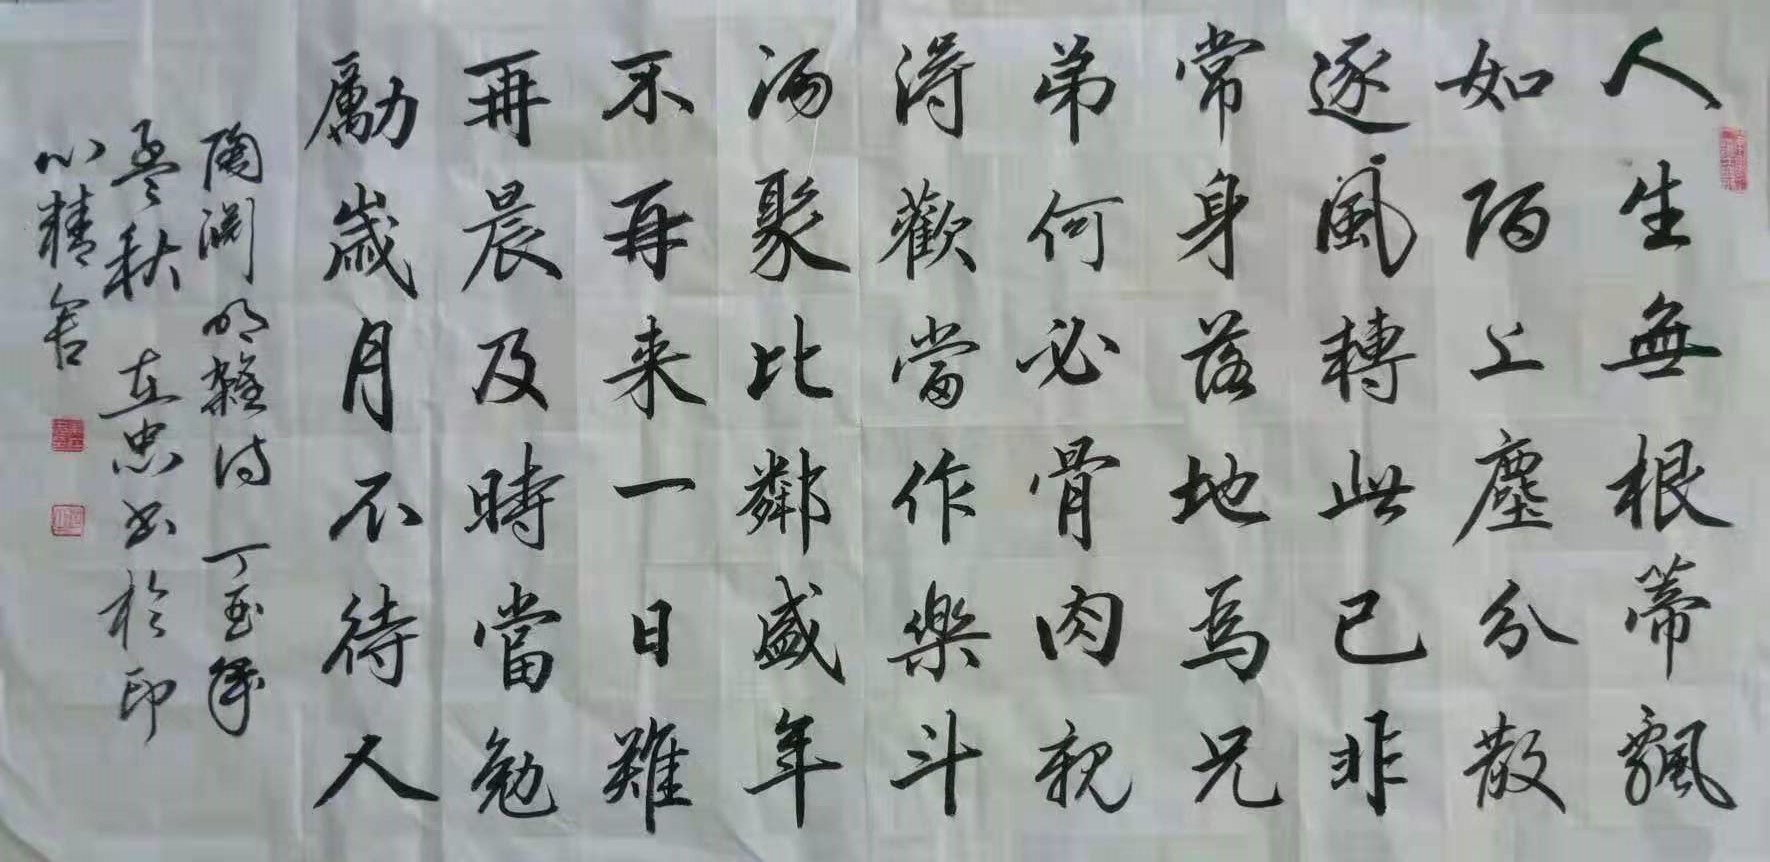 人生無根蒂飄
如陌上塵分散
逐風轉此已非
常身落地為兄
弟何必骨肉親
得歡當作樂斗
酒聚比鄰盛年
不再来一日難
再晨及時當勉
勵歲月不待人
陶渊明雜诗 丁酉年
孟秋 忠书於印
心精舍